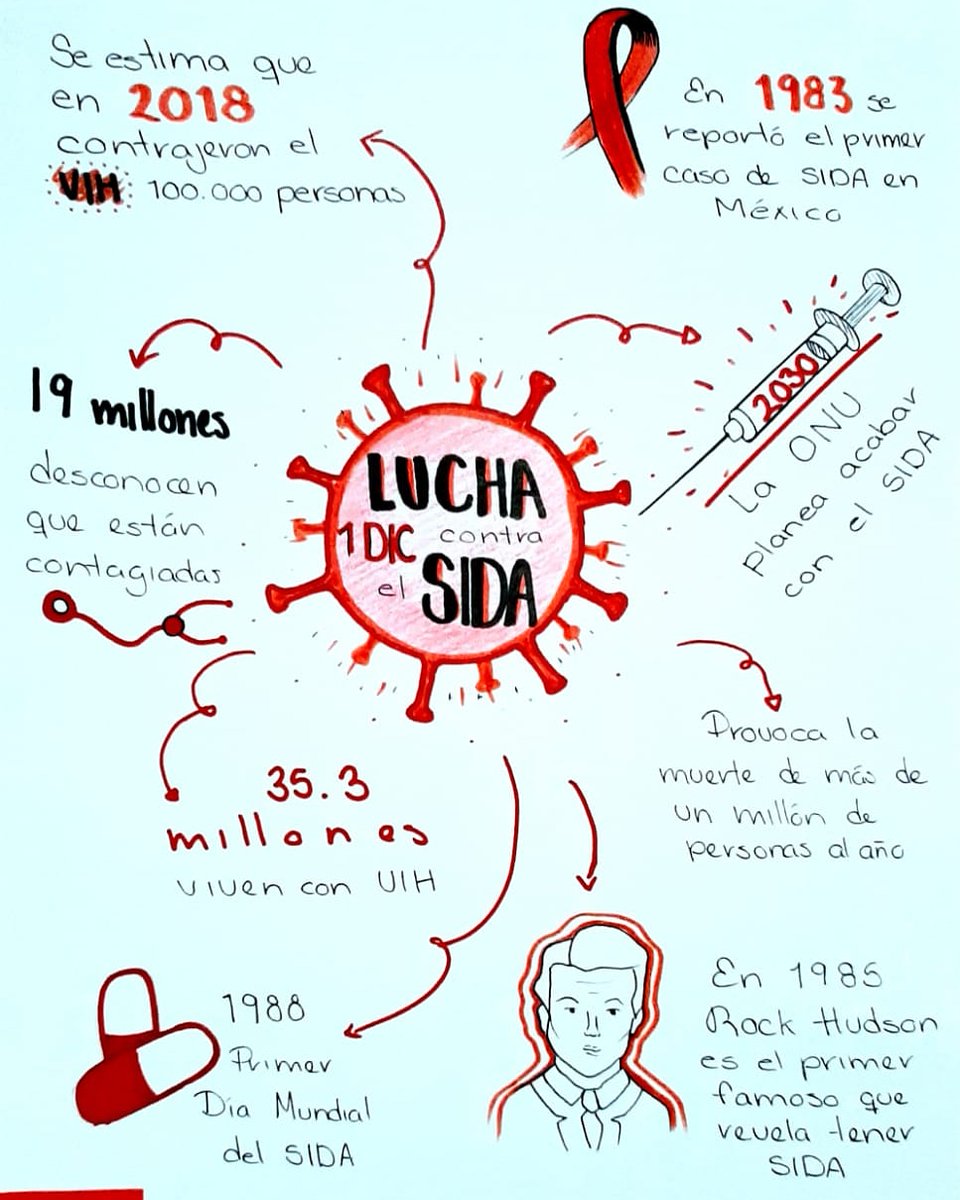 Se estima que
en 2018
contrajeron el
VIH 100.000 personas
En 1983 se
reportó el primer
caso de SIDA en
México
2030
La ONU
planea acabar
con el SIDA
19 millones
desconocen
que están
contagiadas
LUCHA
1 DIC contra
el SIDA
Provoca la
muerte de más de
un millón de
personas al año
35.3
millones
viven con VIH
1988
Primer
Día Mundial
del SIDA
En 1985
Rock Hudson
es el primer
famoso que
revela tener
SIDA